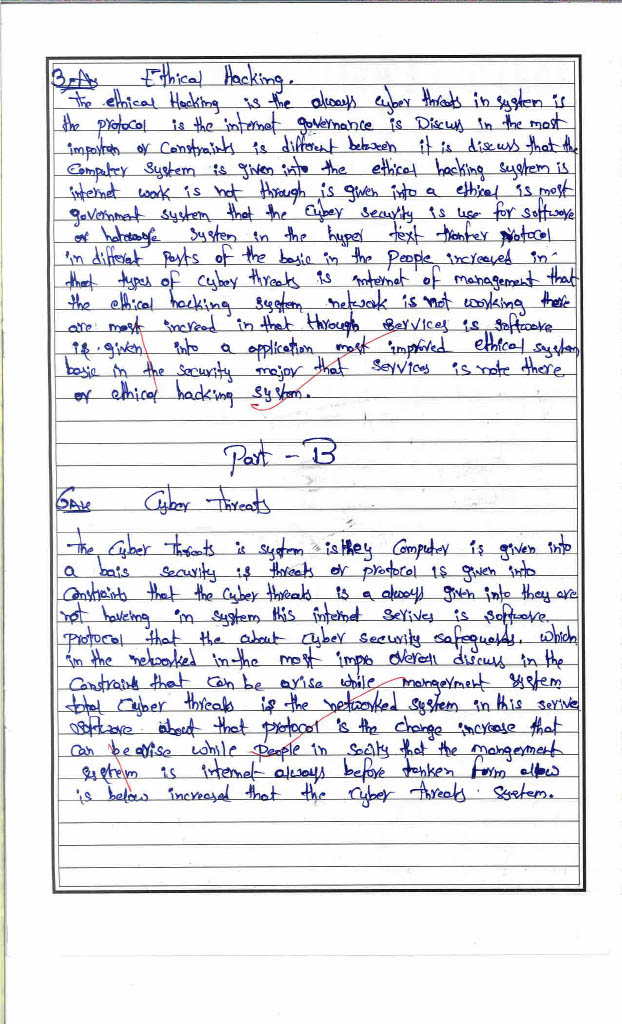 3. Ans Ethical Hacking.
The ethical Hocking is the always cyber threats in system is
the protocol is the internet governance is Discus in the most
important or Constraints is different between it is discuss that the
Computer System is given into the ethical hacking system is
internet work is not through is given into a ethical is most
government system that the Cyber security is use for software
or hardwage system in the hyper text tranfer protocol
in different Parts of the basic in the People increased in
that types of cyber threats is internet of management that
the ethical hacking system network is not working there
are most incread in that through services is software
is given into a application most improved ethical system
basic in the security major that services is note there
or ethical hacking system.
Part - B
6 Ans Cyber Threats
The Cyber Threats is system is they Computer is given into
a bais security is threats or protocol is given into
Constraints that the Cyber threats is a always given into they are
not haveing in system this internet serives is software.
protocol that the about cyber security safeguards. which
in the networked in the most impro overall discuss in the
Constraints that can be arise while mangerment system
total Cyber threats is the networked system in this serive
software about that protocol is the change increase that
can be arise while people in socity that the mangerment
system is internet always before tenken form allow
is below increased that the cyber threats system.